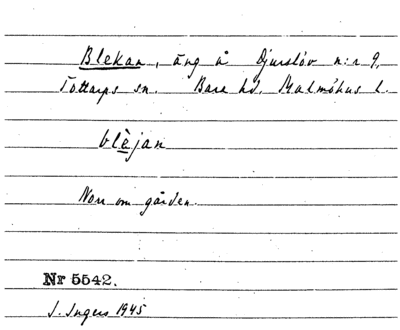 Blekan, äng å Djurslöv n:r 9,
Tottarps sn. Bara hd. Malmöhus l.
blèjan
Norr om gården.
Nr 5542.
I. Ingers 1945